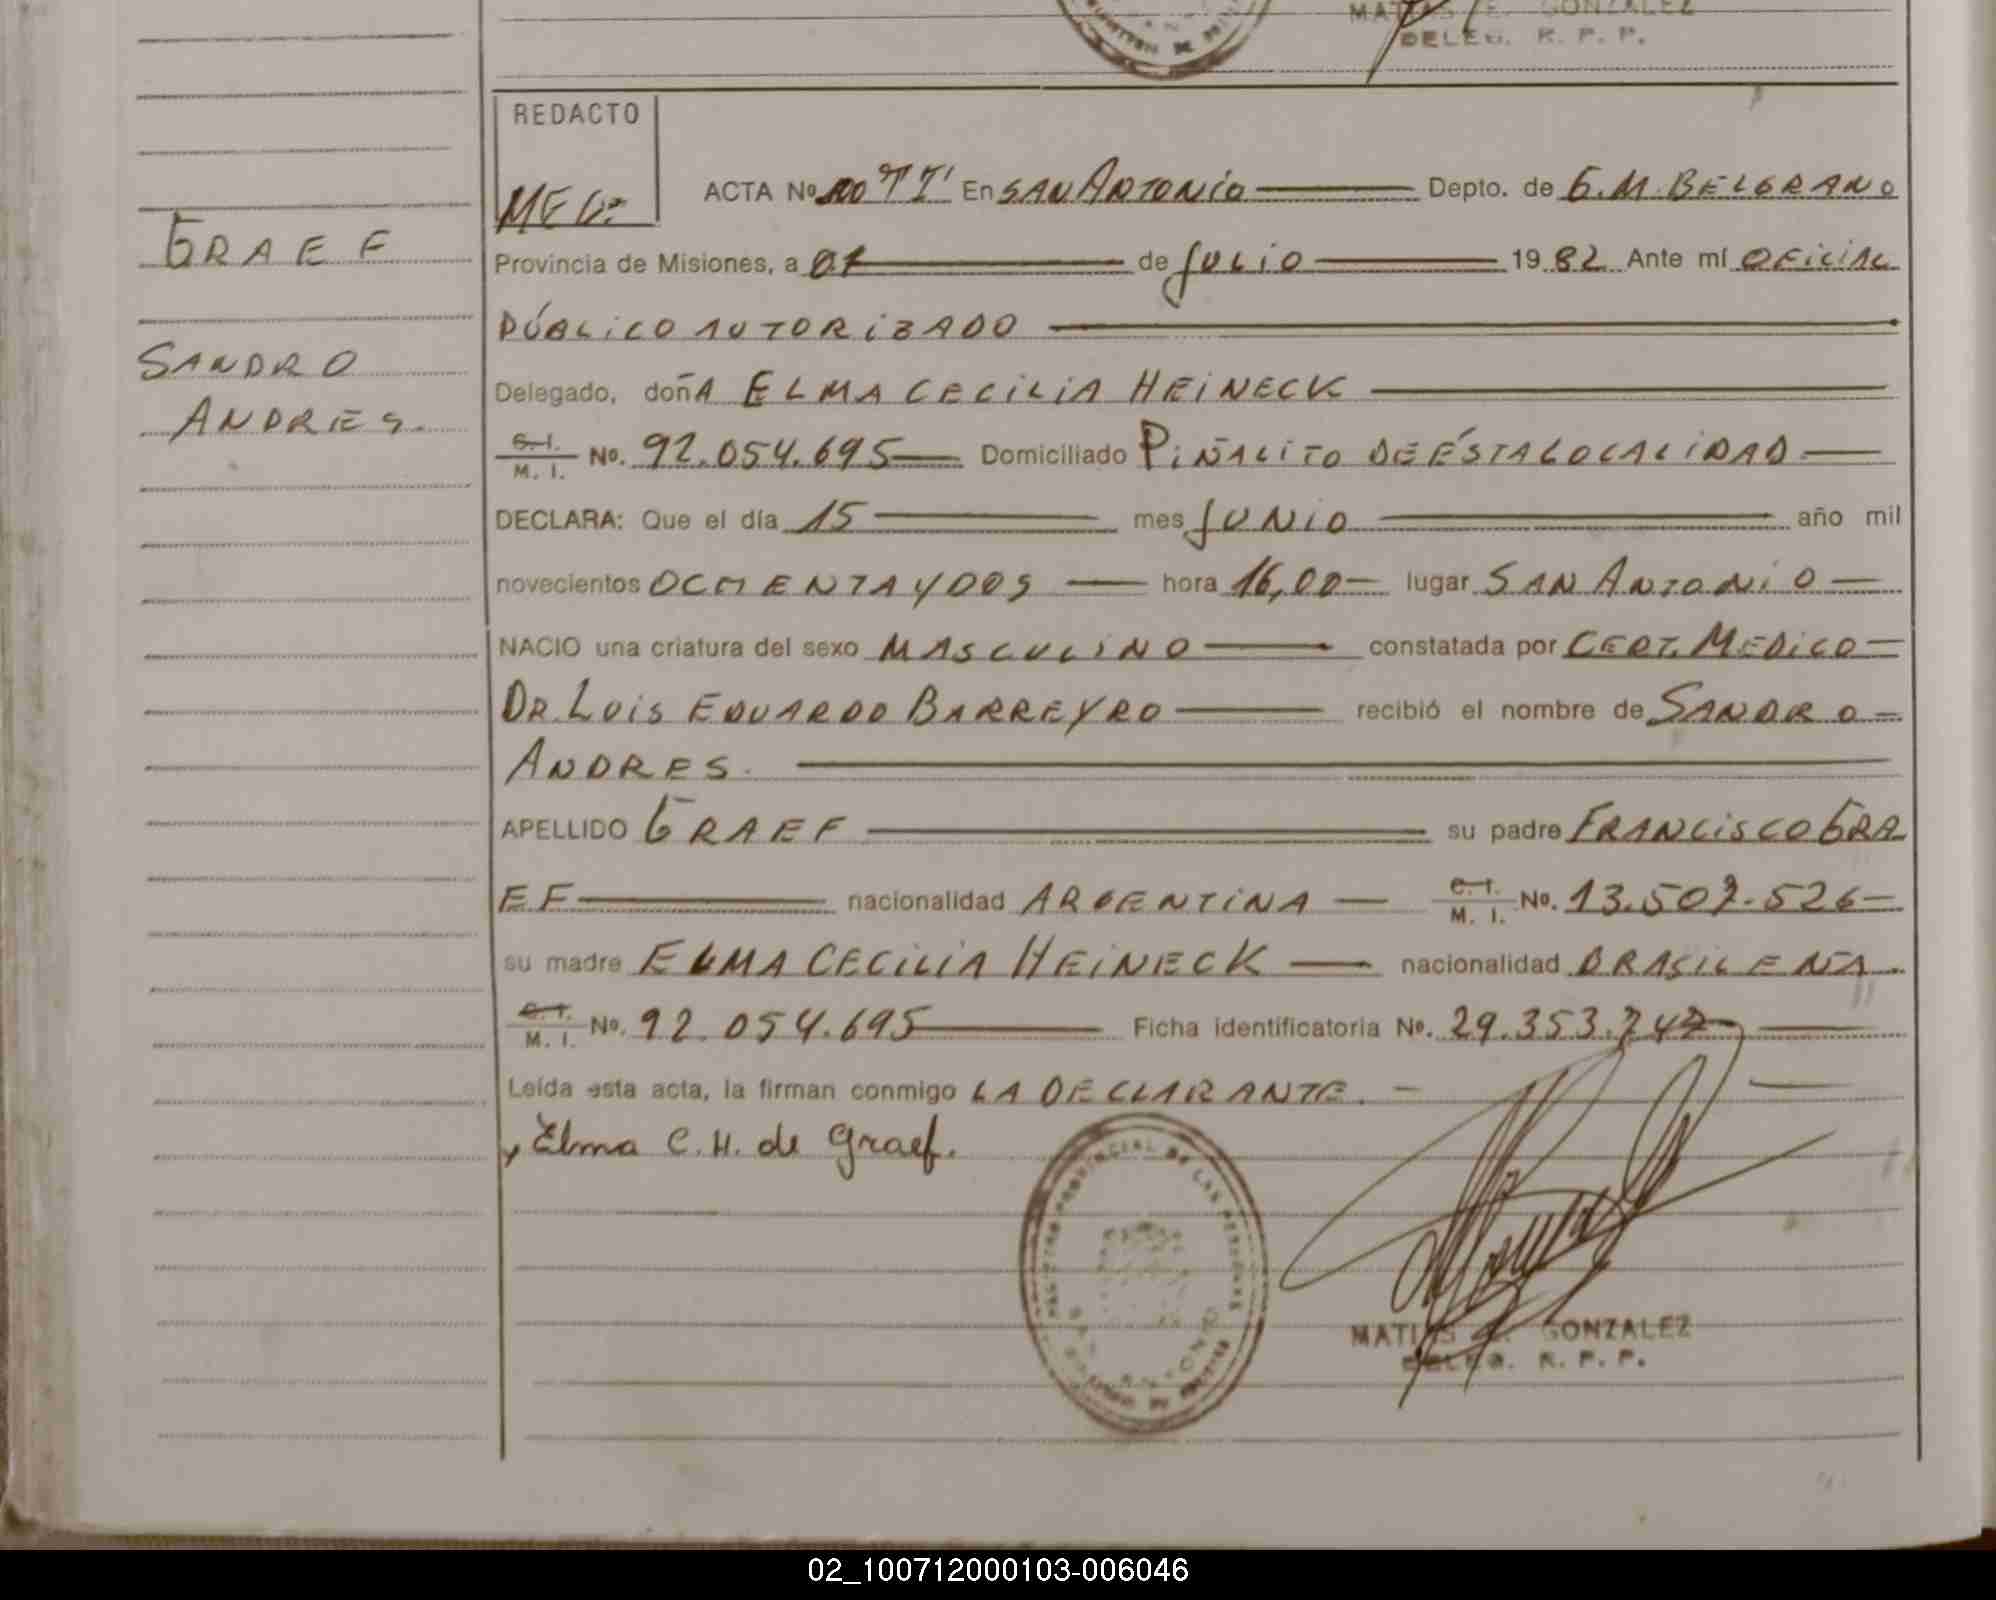 MATIAS E. GONZALEZ
DELEG. R. P. P.
REDACTO
ACTA Nº En SAN ANTONIO Depto. de G.M. BELGRANO
Provincia de Misiones, a 01 de JULIO 19 82 Ante mí OFICIAL
PÚBLICO AUTORIZADO
GRAEF
SANDRO
ANDRES.
Delegado, doñA ELMA CECILIA HEINECK
C. I. M. I. No. 92.054.695 Domiciliado PIÑALITO DE ÉSTA LOCALIDAD
DECLARA: Que el día 15 mes JUNIO año mil
novecientos OCHENTA Y DOS hora 16,00 lugar SAN ANTONIO
NACIO una criatura del sexo MASCULINO constatada por CERT. MEDICO
DR. LUIS EDUARDO BARREYRO recibió el nombre de SANDRO
ANDRES.
APELLIDO GRAEF su padre FRANCISCO GRA
EF nacionalidad ARGENTINA C. I. M. I. No. 13.507.526
su madre ELMA CECILIA HEINECK nacionalidad BRASILEÑA
C. I. M. I. No. 92.054.695 Ficha identificatoria No. 29.353.747
Leída esta acta, la firman conmigo LA DECLARANTE.
Elma C. H. de Graef.
MATIAS E. GONZALEZ
DELEG. R. P. P.
02_100712000103-006046